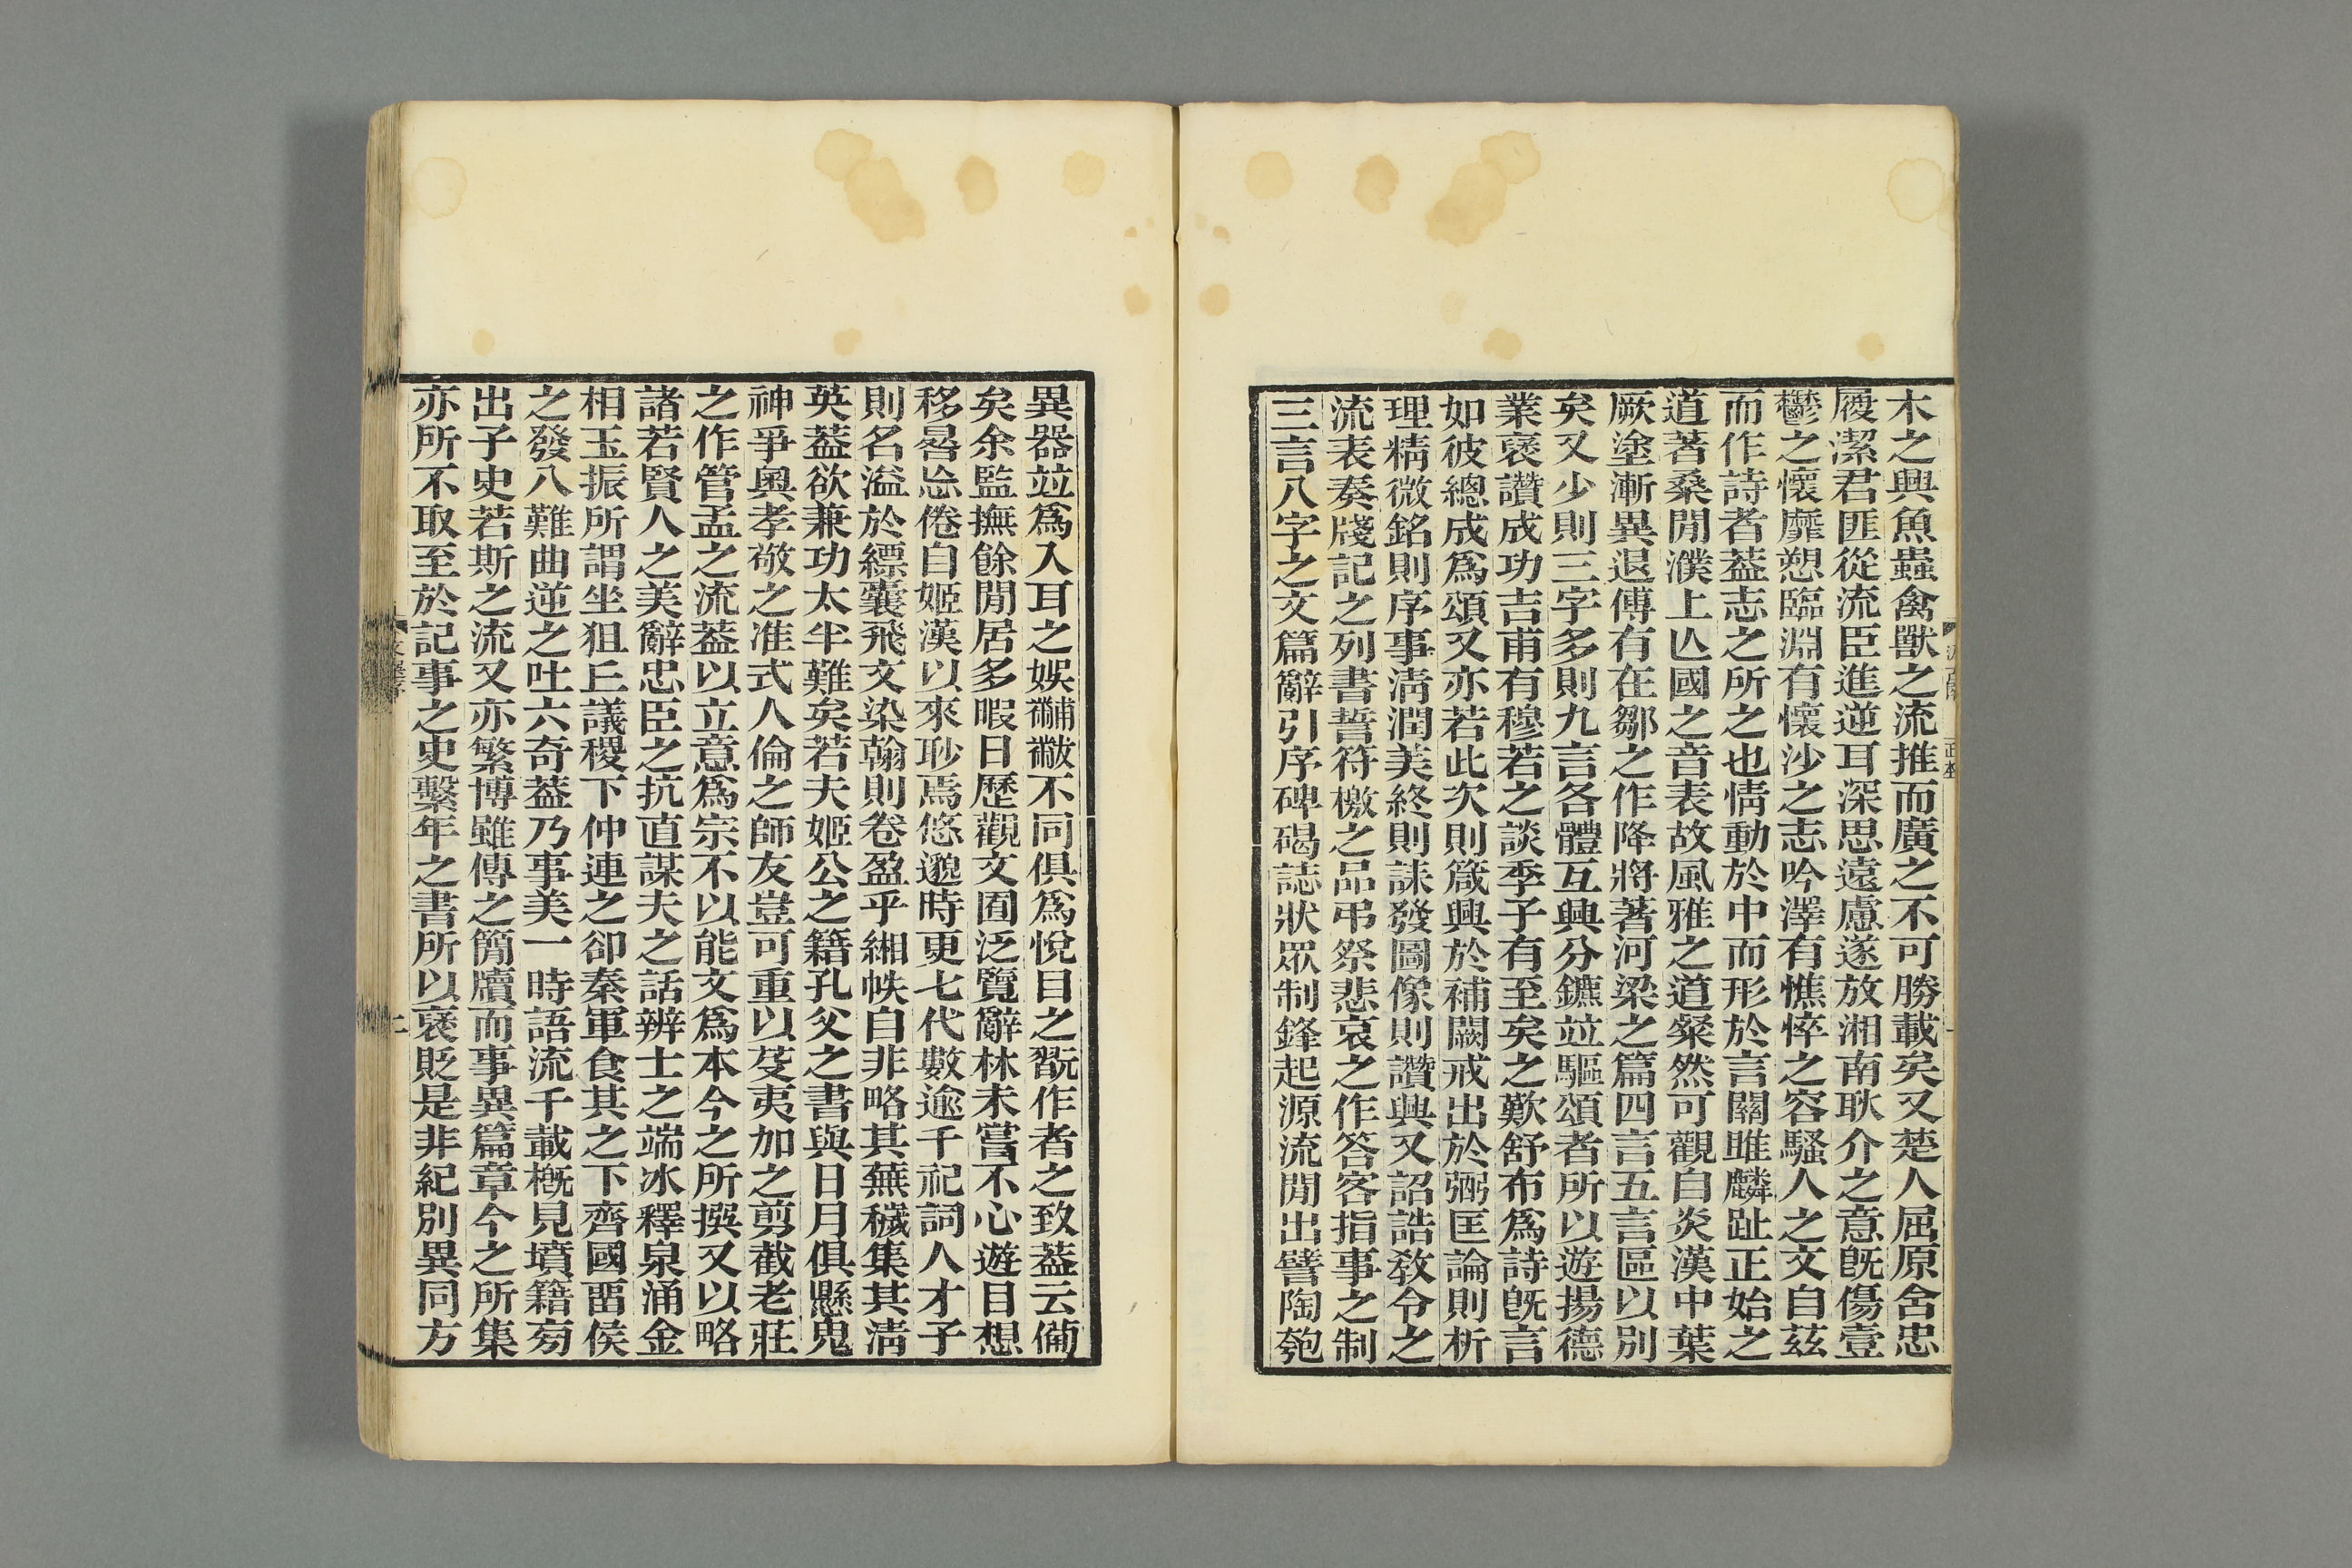 木之興魚蟲禽獸之流推而廣之不可勝載矣又楚人屈原含忠
履潔君匪從流臣進逆耳深思遠慮遂放湘南耿介之意旣傷壹
鬱之懷靡愬臨淵有懷沙之志吟澤有憔悴之容騷人之文自茲
而作詩者葢志之所之也情動於中而形於言關雎麟趾正始之
道著桑閒濮上亾國之音表故風雅之道粲然可觀自炎漢中葉
厥塗漸異退傅有在鄒之作降將著河梁之篇四言五言區以別
矣又少則三字多則九言各體互興分鑣竝驅頌者所以遊揚德
業襃讚成功吉甫有穆若之談季子有至矣之歎舒布爲詩旣言
如彼總成爲頌又亦若此次則箴興於補闕戒出於弼匡論則析
理精微銘則序事淸潤美終則誄發圖像則讚興又詔誥敎令之
流表奏牋記之列書誓符檄之品弔祭悲哀之作答客指事之制
三言八字之文篇辭引序碑碣誌狀眾制鋒起源流閒出譬陶匏
異器竝爲入耳之娛黼黻不同俱爲悅目之翫作者之致葢云備
矣余監撫餘閒居多暇日歷觀文囿泛覽辭林未嘗不心遊目想
移晷忘倦自姬漢以來眇焉悠邈時更七代數逾千祀詞人才子
則名溢於縹囊飛文染翰則卷盈乎緗帙自非略其蕪穢集其淸
英葢欲兼功太半難矣若夫姬公之籍孔父之書與日月俱懸鬼
神爭奧孝敬之准式人倫之師友豈可重以芟夷加之剪截老莊
之作管孟之流葢以立意爲宗不以能文爲本今之所撰又以略
諸若賢人之美辭忠臣之抗直謀夫之話辨士之端冰釋泉涌金
相玉振所謂坐狙丘議稷下仲連之卻秦軍食其之下齊國畱侯
之發八難曲逆之吐六奇葢乃事美一時語流千載槪見墳籍旁
出子史若斯之流又亦繁博雖傳之簡牘而事異篇章今之所集
亦所不取至於記事之史繫年之書所以襃貶是非紀別異同方